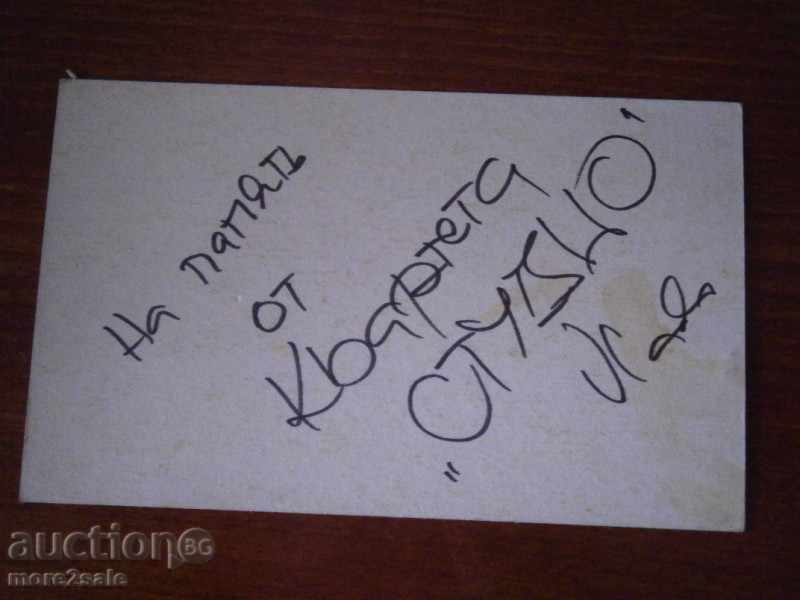 На память
от
Квартета
„СТУДИО"
auction BG
more2sale